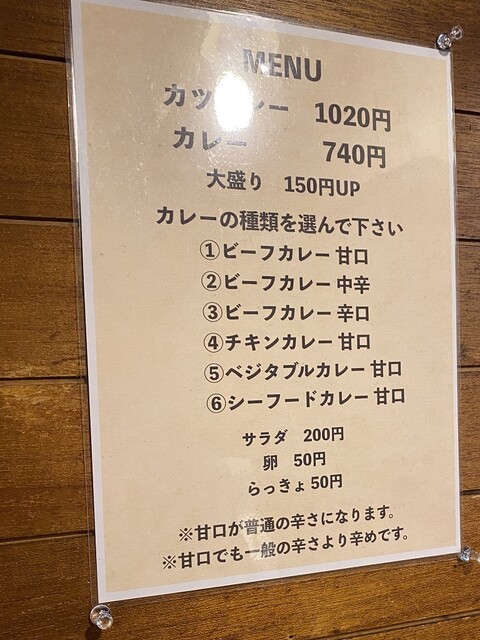 MENU
カツカレー 1020円
カレー 740円
大盛り 150円UP
カレーの種類を選んで下さい
①ビーフカレー 甘口
②ビーフカレー 中辛
③ビーフカレー 辛口
④チキンカレー 甘口
⑤ベジタブルカレー 甘口
⑥シーフードカレー 甘口
サラダ 200円
卵 50円
らっきょ 50円
※甘口が普通の辛さになります。
※甘口でも一般の辛さより辛めです。